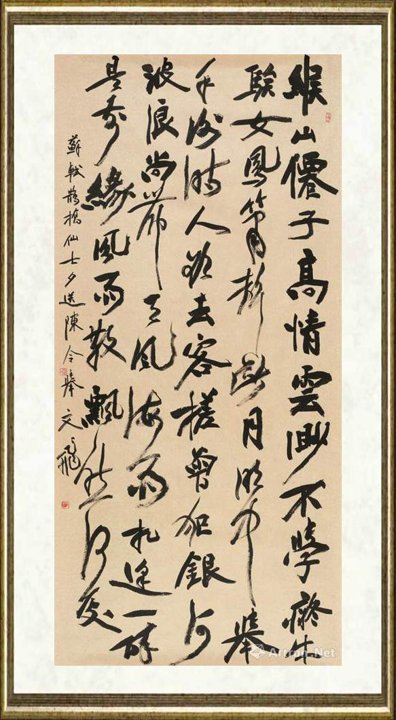 緱山僊子高情雲渺不學癡牛
騃女鳳簫聲斷月明中舉
手謝時人欲去客槎曾犯銀河
波浪尚帶天風海雨相逢一醉
是前緣風雨散飄然何處
蘇軾鵲橋仙七夕送陳令舉 文飛
Artron.Net